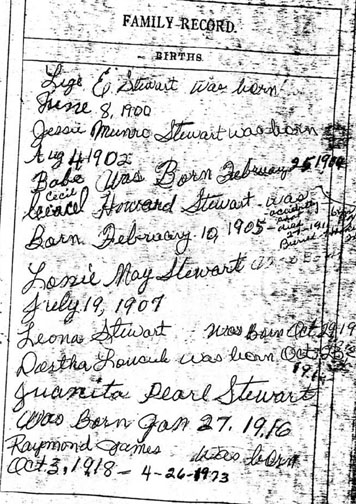 FAMILY RECORD.
BIRTHS.
Lige E Stewart was born
June 8, 1900
Jessie Munro Stewart was born
Aug 4 1902
Babe was Born February 25 1904
Cecil
Howard Stewart was
Born February 10, 1905
Lossie May Stewart
July 19, 1907
Leona Stewart was Born Oct 29
was born Oct
Juanita Pearl Stewart
was Born Jan 27, 1916
Raymond James was born
Oct 3, 1918 - 4-26-1973